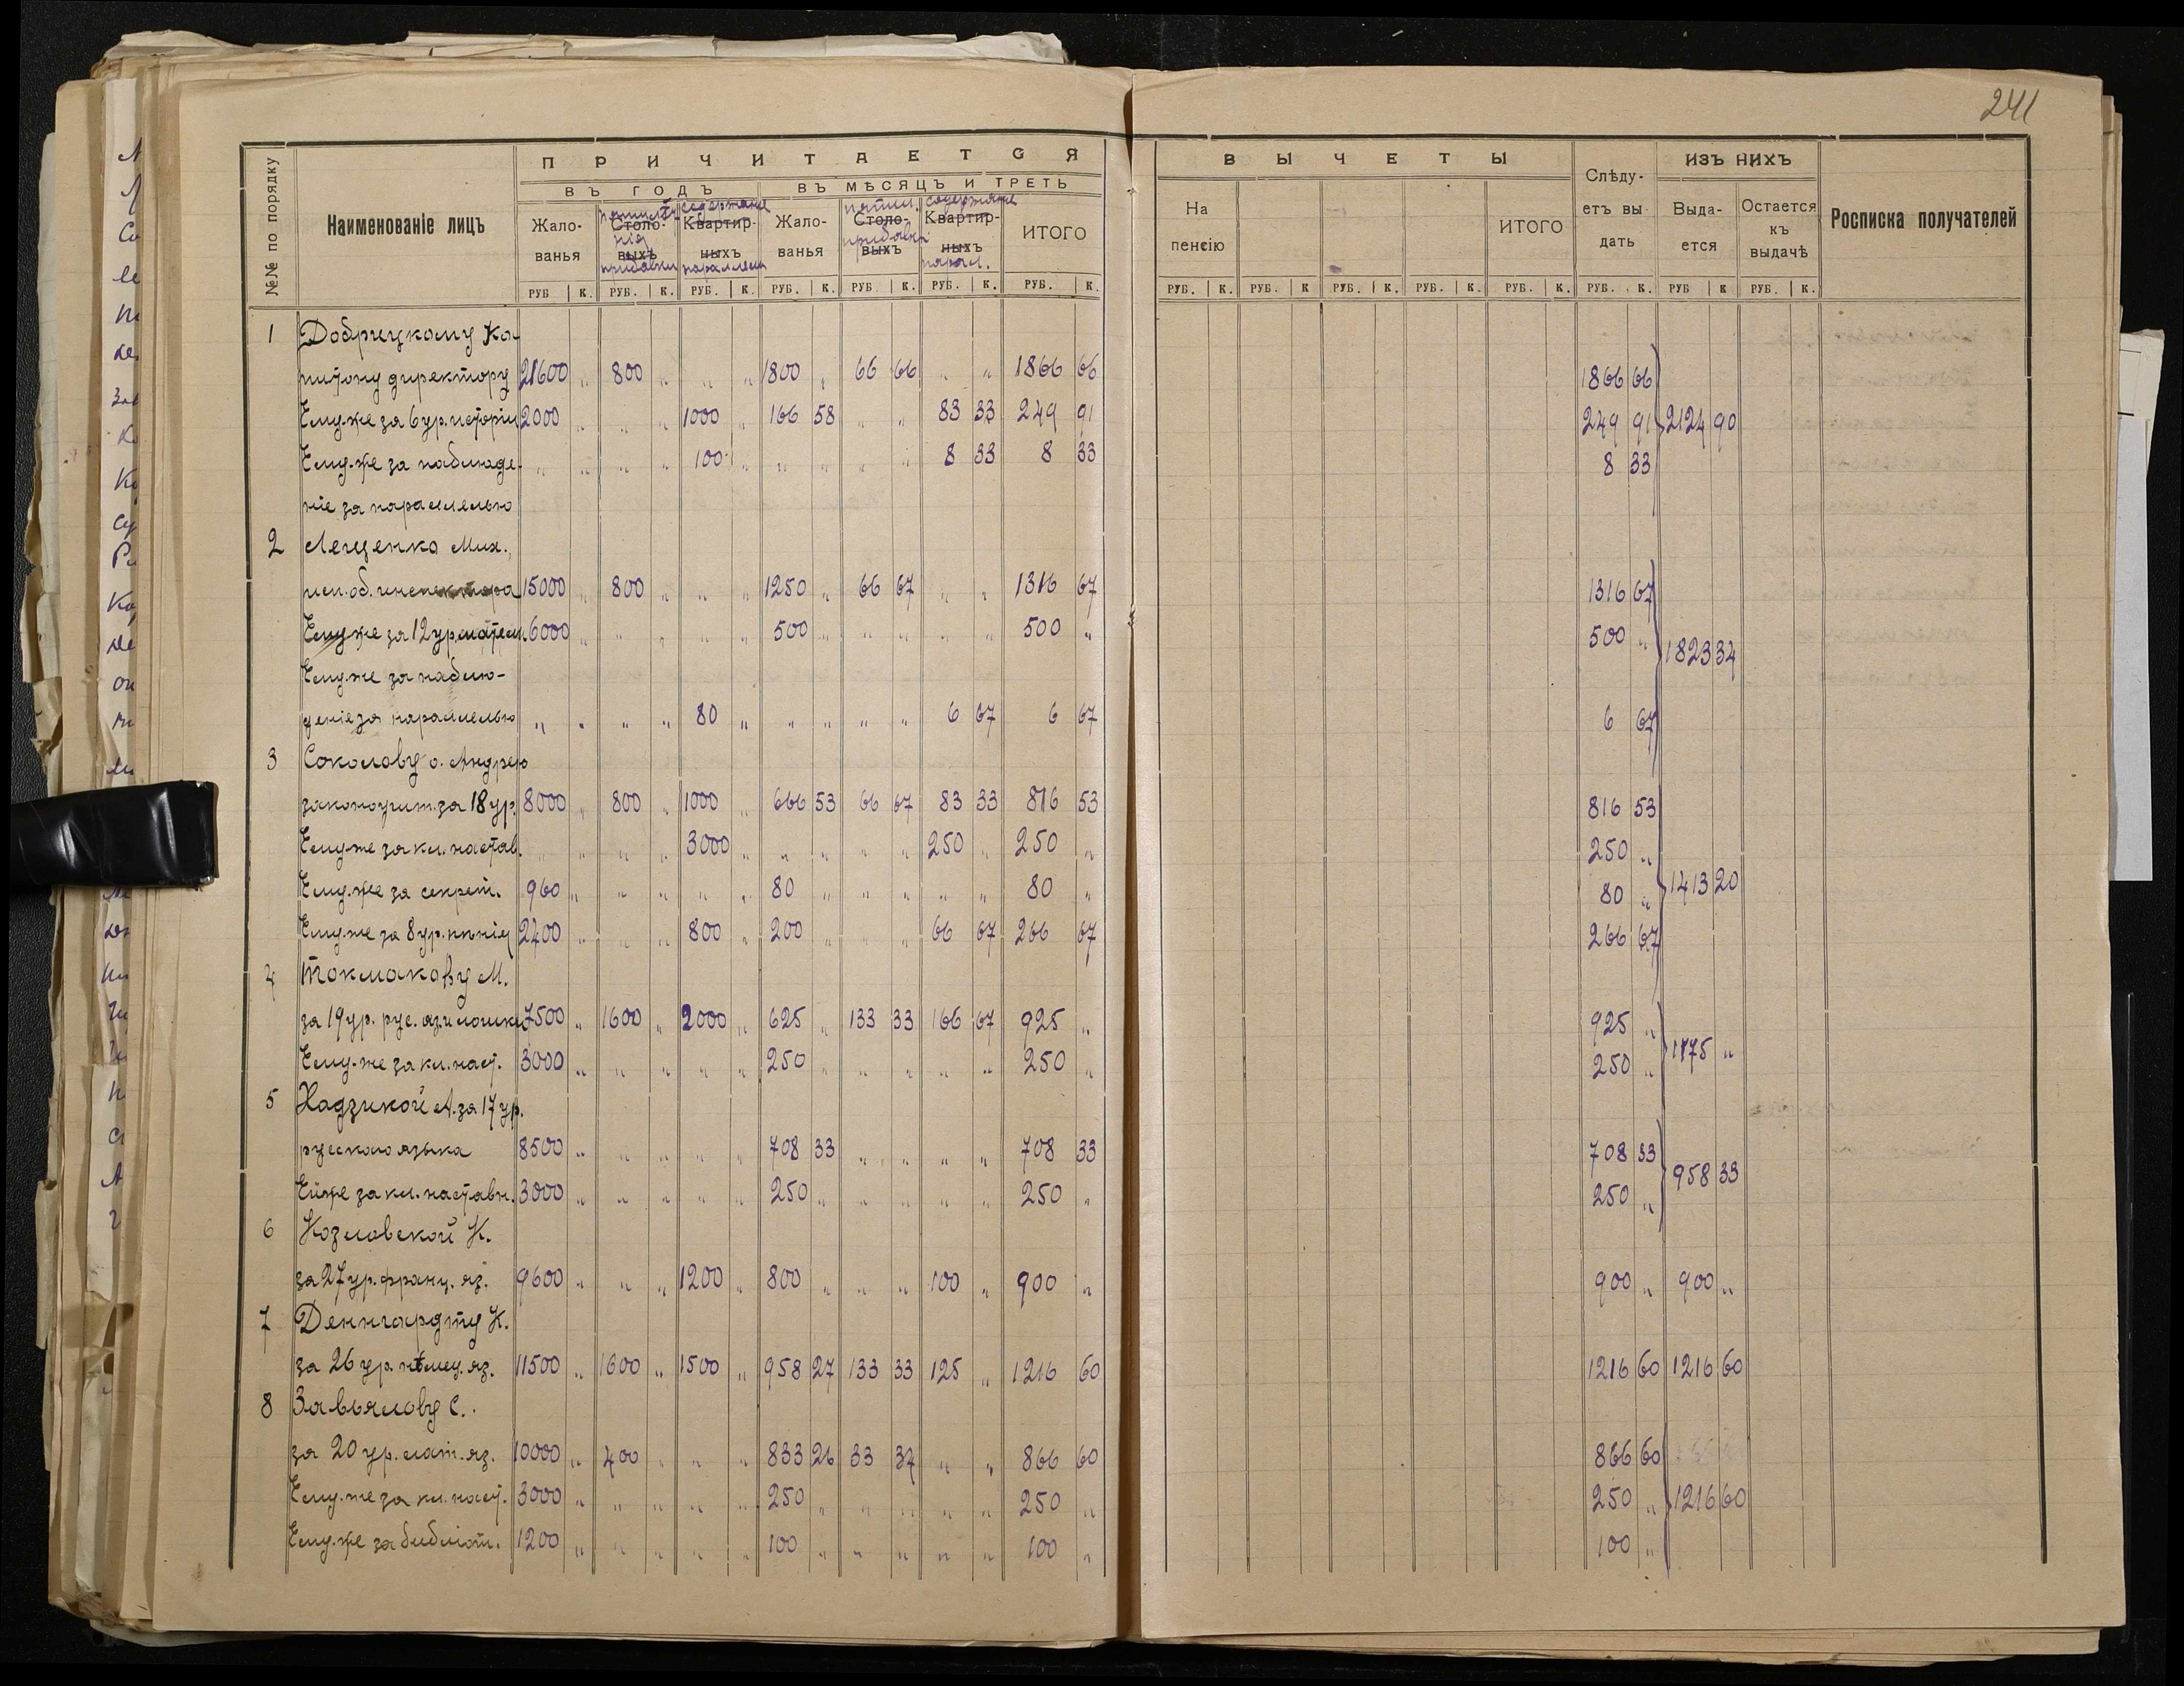 241
№№ по порядку
Наименованіе лицъ
ПРИЧИТАЕТСЯ
ВЪ ГОДЪ
ВЪ МѢСЯЦЪ И ТРЕТЬ
Жало-ванья
Столо-выхъ
прибавки
содержаніе
Квартир-ныхъ
Жало-ванья
Столо-выхъ
прибавки
содержаніе
Квартир-ныхъ
парал.
ИТОГО
РУБ К. РУБ. К. РУБ. К. РУБ. К. РУБ. К. РУБ. К. РУБ. К.
ВЫЧЕТЫ
На пенсію
ИТОГО
Слѣду-етъ вы дать
ИЗЪ НИХЪ
Выда-ется
Остается къ выдачѣ
Росписка получателей
РУБ. К. РУБ. К РУБ. К. РУБ. К. РУБ. К. РУБ. К. РУБ К РУБ. К.
1 Добрицкому Ка-
питону директору 21600 „ 800 „ „ „ 1800 „ 66 66 „ „ 1866 66 1866 66
Ему-же за 6 ур. исторіи 2000 „ „ „ 1000 „ 166 58 „ „ 83 33 249 91 249 91 2124 90
Ему-же за наблюде- „ „ „ „ 100 „ „ „ „ „ 8 33 8 33 8 33
ніе за параллелью
2 Лещенко Мих.,
исп. об. инспектора 15000 „ 800 „ „ „ 1250 „ 66 67 „ „ 1316 67 1316 67
Ему же за 12 ур. матем. 6000 „ „ „ „ „ 500 „ „ „ „ „ 500 „ 500 „ 1823 34
Ему-же за наблю-
деніе за параллелью „ „ „ „ 80 „ „ „ „ „ 6 67 6 67 6 67
3 Соколову о. Андрею
законоучит. за 18 ур. 8000 „ 800 „ 1000 „ 666 53 66 67 83 33 816 53 816 53
Ему-же за кл. настав. „ „ „ „ 3000 „ „ „ „ „ 250 „ 250 „ 250 „
Ему-же за секрет. 960 „ „ „ „ „ 80 „ „ „ „ „ 80 „ 80 „ 1413 20
Ему-же за 8 ур. пѣнія 2400 „ „ „ 800 „ 200 „ „ „ 66 67 266 67 266 67
4 Токмакову М.
за 19 ур. рус. яз. и логики 7500 „ 1600 „ 2000 „ 625 „ 133 33 166 67 925 „ 925 „
Ему-же за кл. наст. 3000 „ „ „ „ „ 250 „ „ „ „ „ 250 „ 250 „ 1175 „
5 Хадзикой А. за 17 ур.
русскаго языка 8500 „ „ „ „ „ 708 33 „ „ „ „ 708 33 708 33
Ей же за кл. наставн. 3000 „ „ „ „ „ 250 „ „ „ „ „ 250 „ 250 „ 958 33
6 Козловской К.
за 27 ур. франц. яз. 9600 „ „ „ 1200 „ 800 „ „ „ 100 „ 900 „ 900 „ 900 „
7 Деннгардту К.
за 26 ур. нѣмец. яз. 11500 „ 1600 „ 1500 „ 958 27 133 33 125 „ 1216 60 1216 60 1216 60
8 Завьялову С.
за 20 ур. лат. яз. 10000 „ 400 „ „ „ 833 26 33 34 „ „ 866 60 866 60
Ему-же за кл. наст. 3000 „ „ „ „ „ 250 „ „ „ „ „ 250 „ 250 „ 1216 60
Ему-же за библіот. 1200 „ „ „ „ „ 100 „ „ „ „ „ 100 „ 100 „